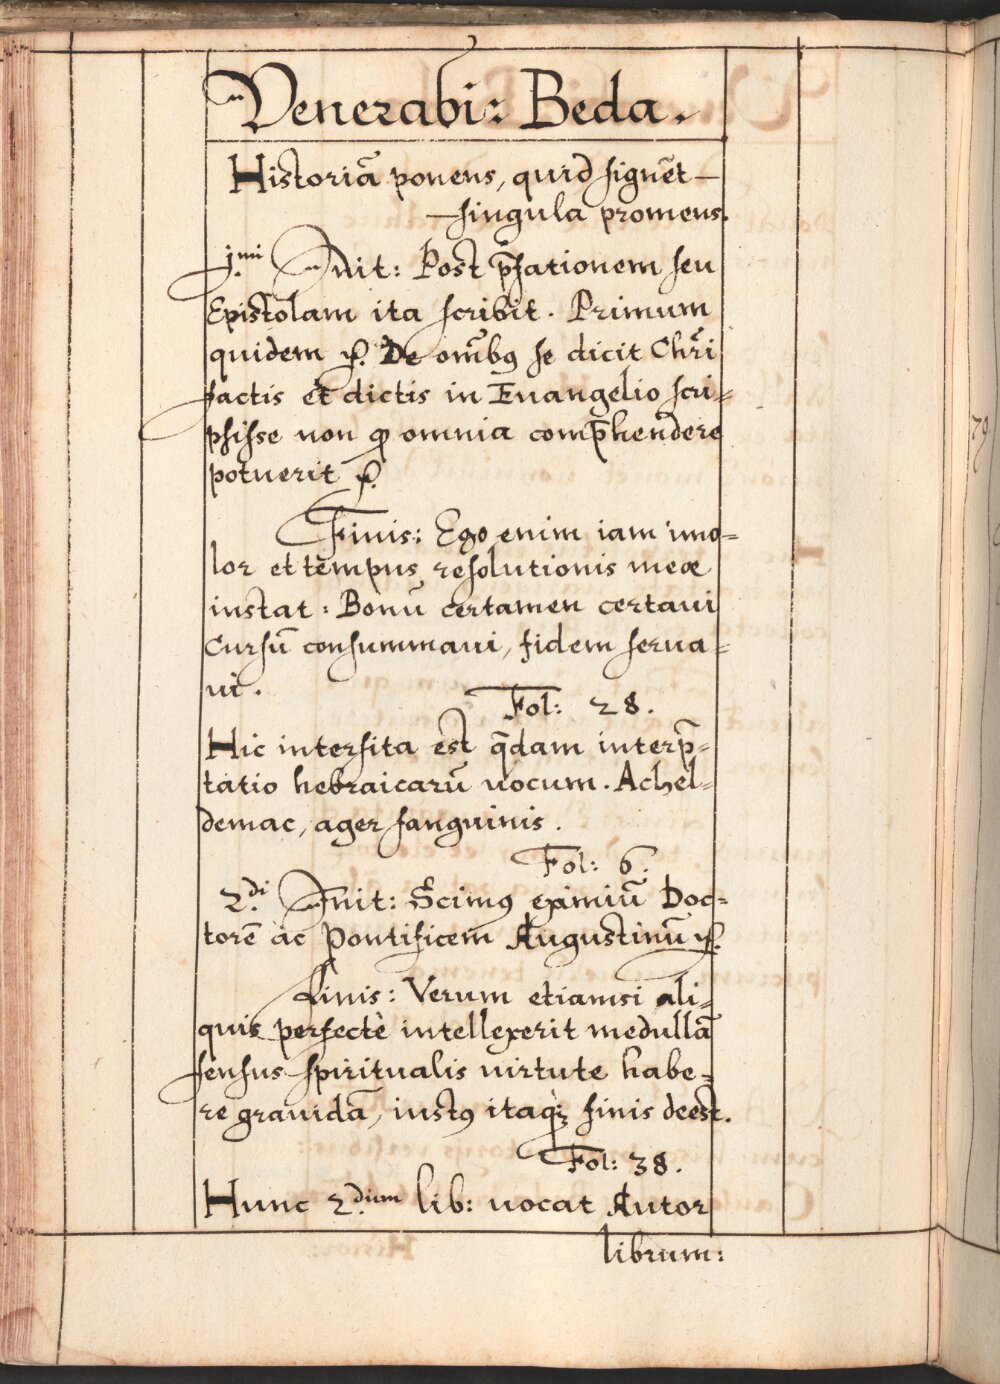 Venerabi: Beda.
Historiā ponens, quid signēt —
— singula promens.
j.mi Init: Post p̄fationem seu
Epistolam ita scribit. Primum
quidem ꝛc. De om̄bꝰ se dicit Chr̄i
factis et dictis in Euangelio scri=
psisse non ꝙ omnia comp̄hendere
potuerit ꝛc.
Finis: Ego enim iam imo=
lor et tempus resolutionis meæ
instat: Bonū certamen certaui
Cursū consummaui, fidem serua=
ui.
Fol: 28.
Hic intersita est q̄dam interp̄=
tatio hebraicarū uocum. Achel=
demac, ager sanguinis.
Fol: 6.
2.di Init: Scimꝰ eximiū Doc=
torē ac Pontificem Augustinū ꝛc.
Finis: Verum etiamsi ali=
quis perfectè intellexerit medullā
sensus spiritualis uirtute habe=
re grauidā, iustꝰ itaqꝫ finis deest.
Fol: 38.
Hunc 2.dum lib: uocat Autor
librum:
79